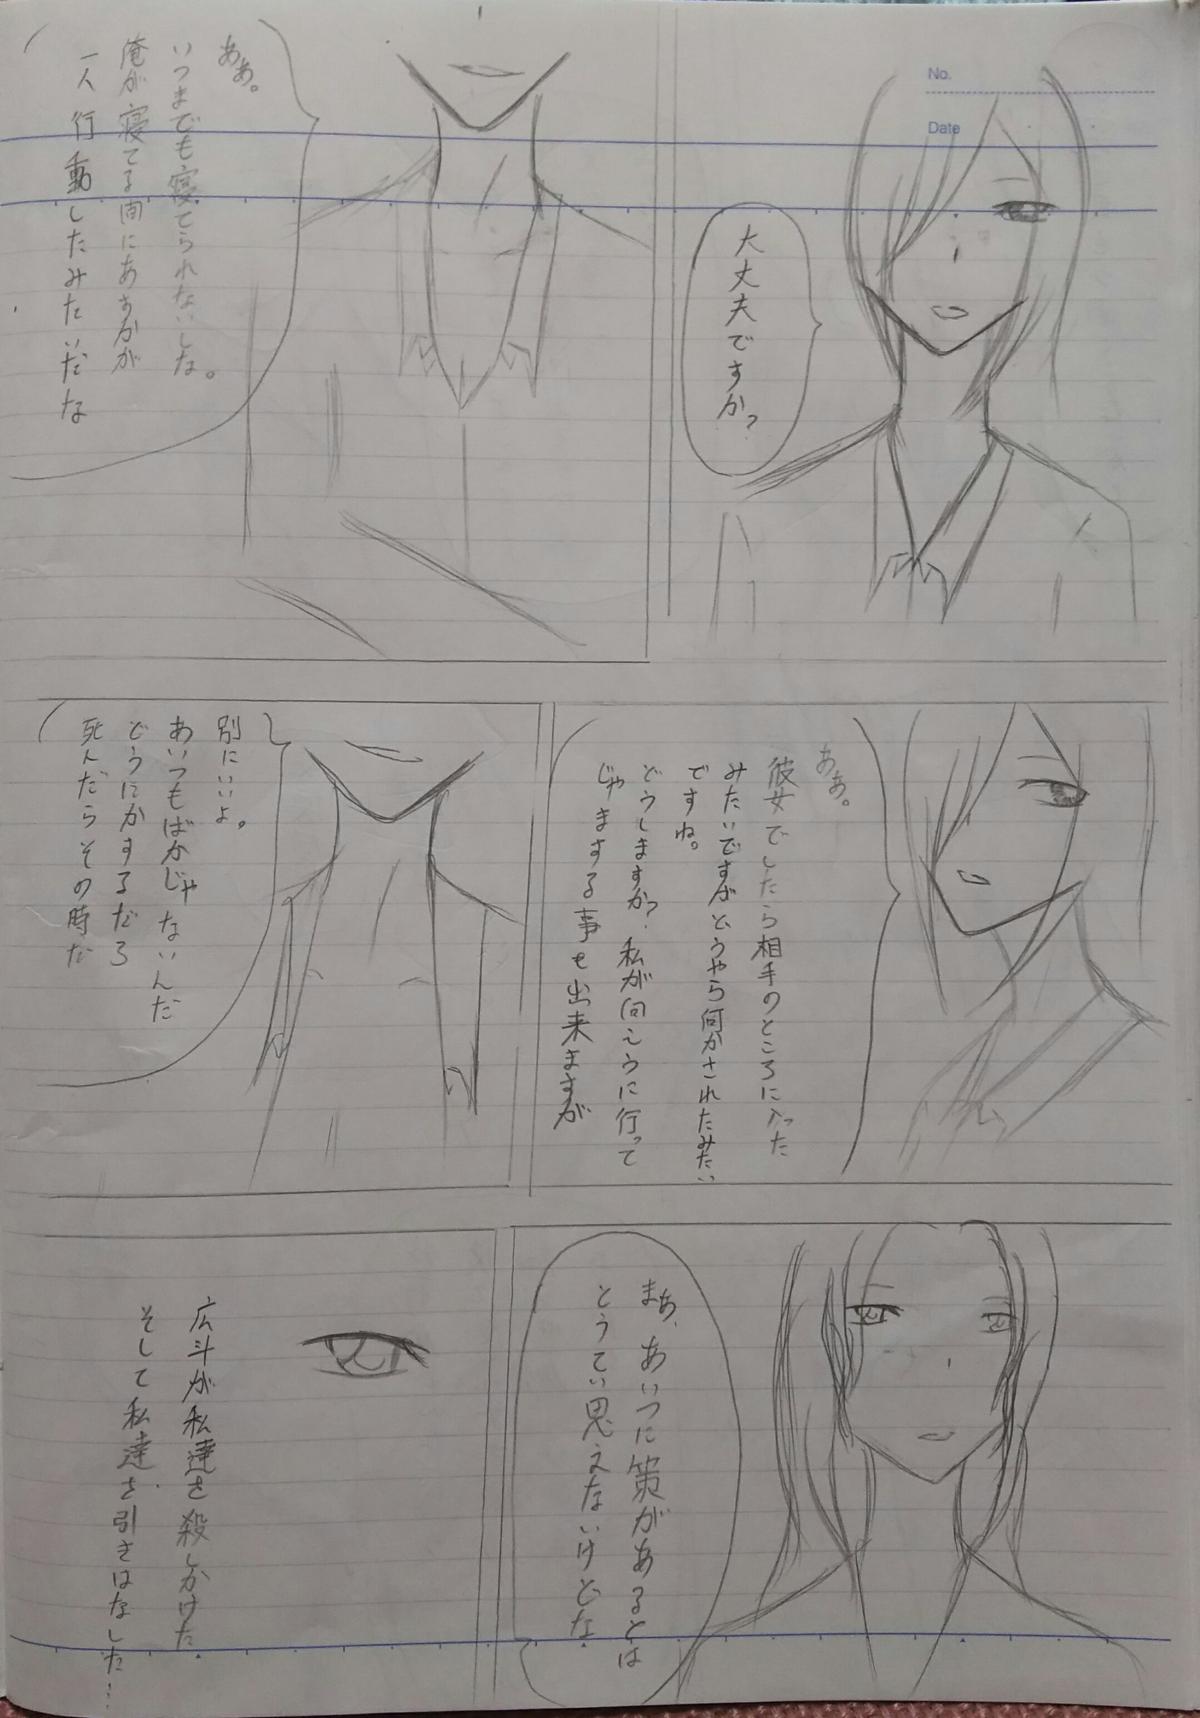 No.
Date
大丈夫ですか?
ああ。
いつまでも寝てられないしな。
俺が寝てる間にあすかが
一人行動したみたいだな
ああ。
彼女でしたら相手のところに入った
みたいですがどうやら何かされたみたい
ですね。
どうしますか?私が向こうに行って
じゃまする事も出来ますが
別にいいよ。
あいつもばかじゃないんだ
どうにかするだろ
死んだらその時だ
まあ、あいつに策があるとは
とうてい思えないけどな
広斗が私達を殺しかけた
そして私達を引きはなした…